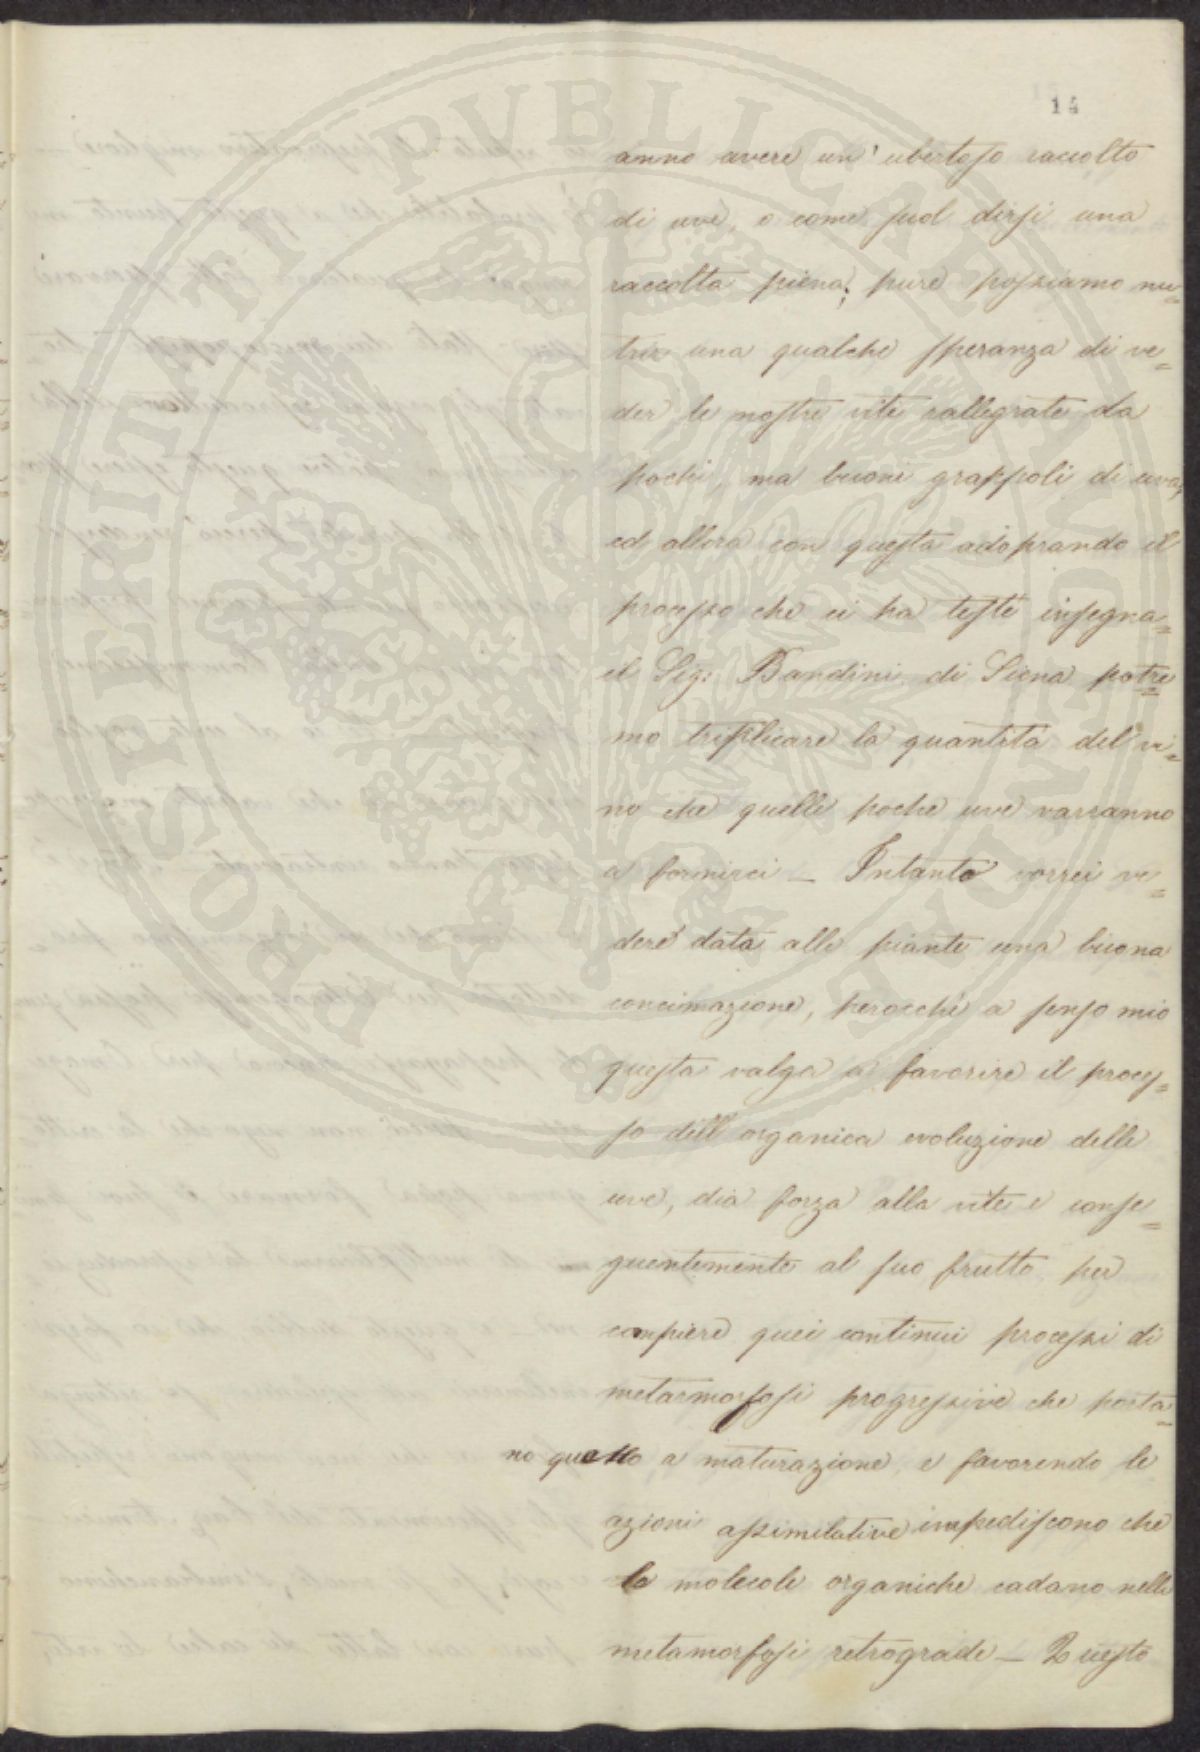 14
anno avere un' ubertoso raccolto
di uve, o come suol dirsi una
raccolta piena; pure possiamo nu=
trir una qualche speranza di ve=
der le nostre viti rallegrate da
pochi, ma buoni grappoli di uva,
ed allora con questa adoprando il
processo che ci ha testè insegna=
il Sig: Bandini di Siena potre=
mo triplicare la quantità del vi=
no che quelle poche uve varranno
a fornirci — Intanto vorrei ve=
dere data alle piante una buona
concimazione, perocchè a senso mio
questa valga a favorire il proces=
so dell'organica evoluzione delle
uve, dia forza alla vite e conse=
guentemente al suo frutto per
compiere quei continui processi di
metarmorfosi progressive che porta=
no quello a maturazione, e favorendo le
azioni assimilative impediscono che
le molecole organiche cadano nelle
metamorfosi retrograde — Questo
PROSPERITATI PUBLICAE AUGENDAE